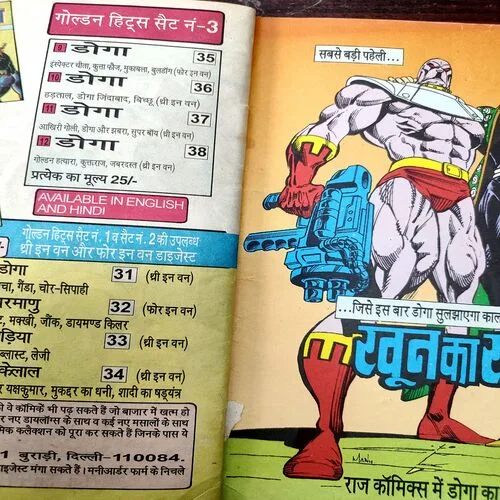 गोल्डन हिट्स सैट नं-3
9 डोगा 35
इंस्पेक्टर चीता, कुत्ता फौज, मुकाबला, बुलडॉग (फोर इन वन)
10 डोगा 36
हड़ताल, डोगा जिंदाबाद, बिच्छू (थ्री इन वन)
11 डोगा 37
आखिरी गोली, डोगा और झबरा, सुपर बॉय (थ्री इन वन)
12 डोगा 38
गोल्डन हत्यारा, कुत्ताराज, जबरदस्त (थ्री इन वन)
प्रत्येक का मूल्य 25/-
AVAILABLE IN ENGLISH
AND HINDI
गोल्डन हिट्स सैट नं. 1 व सैट नं. 2 की उपलब्ध
थ्री इन वन और फोर इन वन डाइजेस्ट
डोगा 31 (थ्री इन वन)
गैंडा, चोर-सिपाही
रमाणु 32 (फोर इन वन)
मक्खी, जौंक, डायमण्ड किलर
ड़िया 33 (थ्री इन वन)
ब्लास्ट, लेजी
केलाल 34 (थ्री इन वन)
र यक्षकुमार, मुकद्दर का धनी, शादी का षड्यंत्र
वे कॉमिकें भी पढ़ सकते हैं जो बाजार में खत्म हो
र नए डायलॉग्स के साथ व कई नए मसालों के साथ
मिक कलैक्शन को पूरा कर सकते हैं जिनके पास ये
1 बुराड़ी, दिल्ली-110084.
इजेस्ट मंगा सकते हैं। मनीआर्डर फार्म के निचले
सबसे बड़ी पहेली...
...जिसे इस बार डोगा सुलझाएगा काल
खून का
राज कॉमिक्स में डोगा का